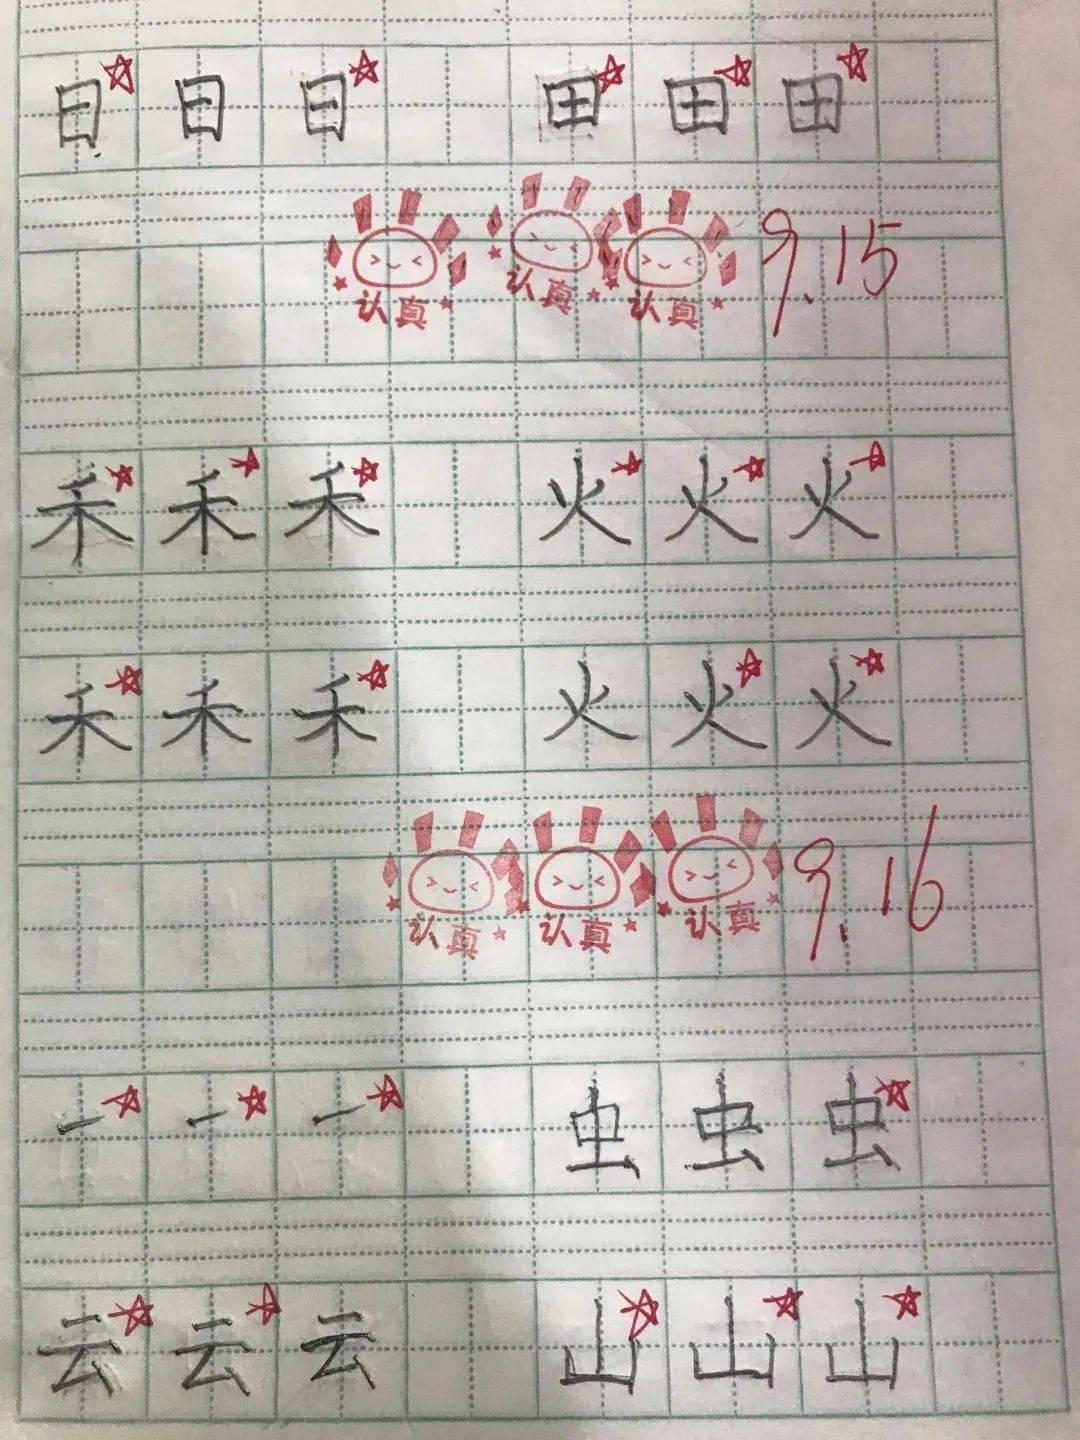 日 日 日 田 田 田
认真 认真 认真 9.15
禾 禾 禾 火 火 火
禾 禾 禾 火 火 火
认真 认真 认真 9.16
一 一 一 虫 虫 虫
云 云 云 山 山 山